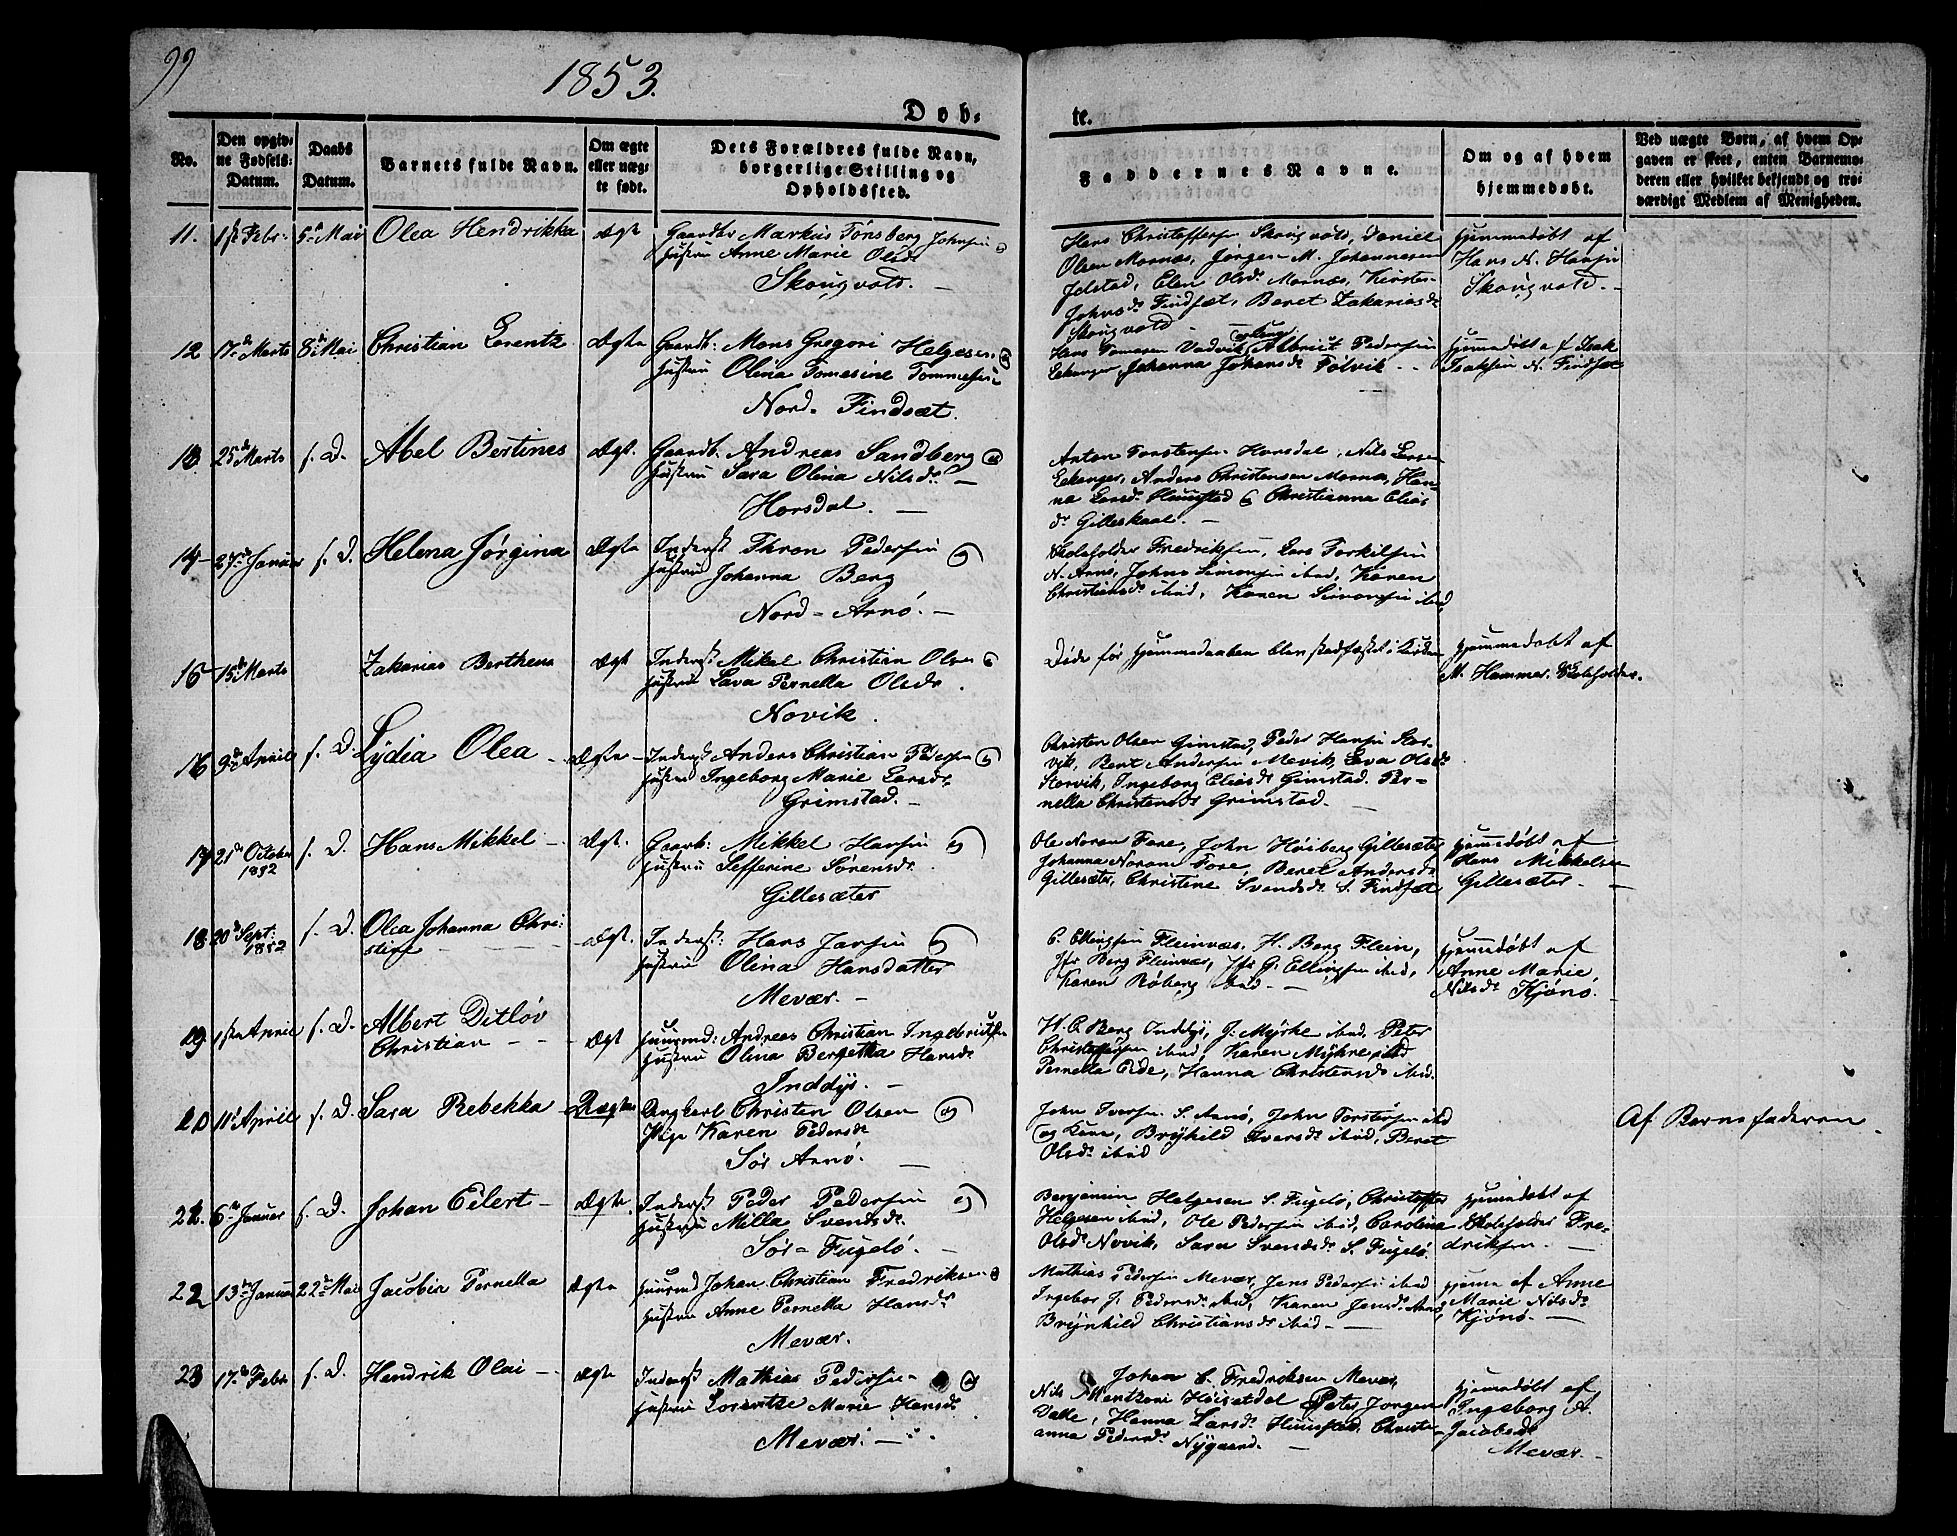 99
1853.
Døb-
te.
No.
Den opgiv-
ne Fødsels-
Datum.
Daabs
Datum.
Barnets fulde Navn.
Om ægte
eller uæg-
te født.
Dets Forældres fulde Navn,
borgerlige Stilling og
Opholdssted.
Faddernes Navne.
Om og af hvem
hjemmedøbt.
Ved uægte Børn, af hvem Op-
gaven er skeet, enten Barnemo-
deren eller hvilket bekjendt og tro-
værdigt Medlem af Menigheden.
11.
1ste Febr.
5te Mai
Olea Hendrikka
Ægt
Gaardbr Markus Tønsberg Johnsen
Hustru Anne Marie Olsdr
Skougvold.
Hans Christoffersen Skougvold, Daniel
Olsen Mornæs, Jørgen M. Johannesen
Jelstad, Elen Olsdr Mornæs, Kirsten
Johnsdr Findsæt, Beret Zakariasdr
Skougvold
hjemmedøbt af
Hans N. Hansen
Skougvold.
12
17de Marts
8de Mai
Christian Lorentz
Ægte
Gaardb: Mons Gregori Helgesen
Hustru Olina Tomesine Tommesen
Nord-Findsæt.
Hans Tomesen Vadvik, Albrict Pedersen
Eckanger, Johanna Johansdr Tolvik
hjemmedøbt af Isak
Isaksen N. Findsæt
13
25de Marts
s. D.
Abel Bertines
Ægt.
Gaardb. Andreas Sandberg
Hustru Sara Olina Nilsdr
Horsdal.
Anton Torstensen Horsdal, Nils Larsen
Eckanger, Anders Christensen Mornæs, Han-
na Larsdr Hunstad & Christianna Elias
dr Gilleskaal.
14
27de Januar
s. D.
Helena Jørgina
Ægte
Inderst Thron Pedersen
Hustru Johanna Berg
Nord-Arnö.
Skoleholder Fredriksen, Lars Torkilsen
N. Arnö, Johns Simonsen ibid, Karen
Christiansdr ibid, Karen Simonsen ibid
15
15de Marts
Zakarias Berthens
Ægt
Inderst: Mikel Christian Olsen
Hustru Lava Pernella Olsdr
Novik.
Døde før hjemmedaaben blev stadfæstet i Kirken
hjemmedøbt af
M. Hammer. Skoleholder.
16
3de April
s. D.
Lydia Olea
Ægte
Inderst Anders Christian Pedersen
Hustru Ingeborg Marie Larsdr
Grimstad.
Christen Olsen Gimstad, Peder Hansen Stor-
vik, Bent Andersen Mevik, Lava Olsdr
Storvik, Ingeborg Eliasdr Gimstad. Per-
nella Christensdr Grimstad.
17
21de October
1852
s. D.
Hans Mikkel
Ægt.
Gaardb: Mikkel Hansen
Hustru Sefferine Sørensdr
Gillesæter
Ole Noram Fore, John Høiberg Gillesæter
Johanna Noram Fore, Beret Andersdr
Gillesæter, Christine Svendsdr S. Findsæt
hjemmedøbt af
Hans Mikkelsen
Gillesæter
18
20de Sept:
1852
s. D.
Olea Johanna Chri-
stine
Ægt.
Inderst: Hans Jansen
Hustru Olina Hansdatter
Mevær.
C. Ellingsen Fleinvær, H. Berg Flein,
Jfr Berg Fleinvær, Jfr G. Ellingsen ibid,
Karen Røberg ibid.
hjemmedøbt af
Anne Marie
Nilsdr Kjönö.
19
1ste April
s. D.
Albert Ditløv
Christian
Ægt
Huusmd: Andreas Christian Ingebrictsen
Hustru Olina Bergetha Hansdr
Inddyr.
H. C. Berg Inddyr, J. Myhre ibid. Peter
Christoffersen ibid, Karen Myhre, ibid
Pernella Eide, Hanna Christensdr ibid.
20
11te April
s. D.
Sara Rebekka
Uægte
Ungkarl Christen Olsen
Pige Karen Pedersdr
Sør Arnö.
John Iversen S. Arnö, John Torstensen ibid
og Kone, Brynhild Iversdr ibid, Beret
Olsdr ibid
Af Barnefaderen
21.
6te Januar
s. D.
Johan Eilert
Ægte
Inderst Peder Pedersen
Hustru Milla Svendsdr
Sør-Fugelö.
Benjamin Helgesen S. Fugelö, Christoffer
Helgesen ibid, Ole Pedersen ibid, Carolina
Olsdr Novik, Sara Svendsdr S. Fugelö.
hjemmedøbt af
Skoleholder Fre-
driksen.
22
13de Januar
22de Mai
Jacobia Pernella
Ægte
Huusmd Johan Christian Fredriksen
Hustru Anne Pernella Hansdr
Mevær.
Mathias Pedersen Mevær, Jens Pedersen ibid
Ingebor J. Pedersdr ibid, Karen Jensdr Arnö,
Brynhild Christiansdr ibid
hjemme af Anne
Marie Nilsdr
Kjönö.
23
17de Febr
s. D.
Hendrik Olai
Ægte
Inderst Mathias Pedersen
Hustru Lorentze Marie Hansdr
Mevær.
Johan C. Fredriksen Mevær,
Nils Mentzoni Høisetdal Peter Jørgen
Dalle, Hanna Larsdr Hunstad, Christi-
anna Pedersdr Nygaard.
hjemmedøbt af
Ingeborg A.
Jacobsdr
Mevær.